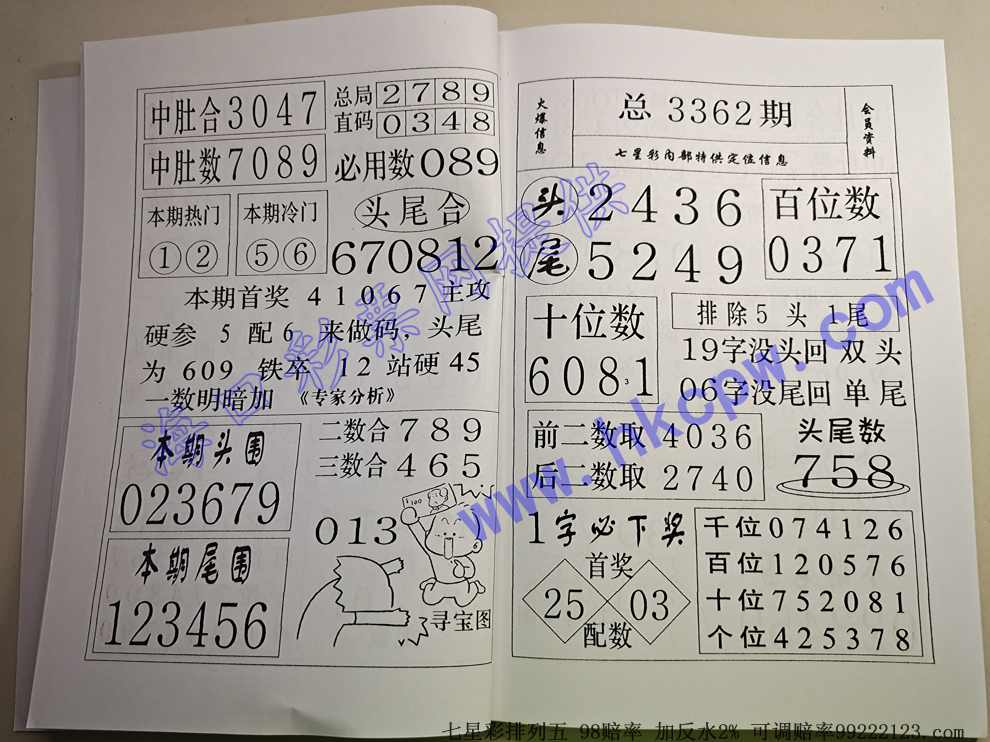 中肚合3047
中肚数7089
总局2789
直码0348
必用数089
本期热门
①②
本期冷门
⑤⑥
头尾合
670812
本期首奖41067主攻
硬参 5 配6 来做码，头尾
为 609 铁卒 12 站硬45
一数明暗加 《专家分析》
本期头围
023679
本期尾围
123456
二数合789
三数合465
013
100
寻宝图
火爆信息
总 3362期
七星彩内部特供定位信息
会员资料
头2436
尾5249
百位数
0371
十位数
6081
3
排除5 头 1尾
19字没头回 双 头
06字没尾回 单 尾
前二数取 4036
后二数取 2740
头尾数
758
1字必下奖
首奖
25 03
配数
千位074126
百位120576
十位752081
个位425378
海口彩票网提供
www.hkcpw.com
七星彩排列五 98赔率 加反水2% 可调赔率99222123.com